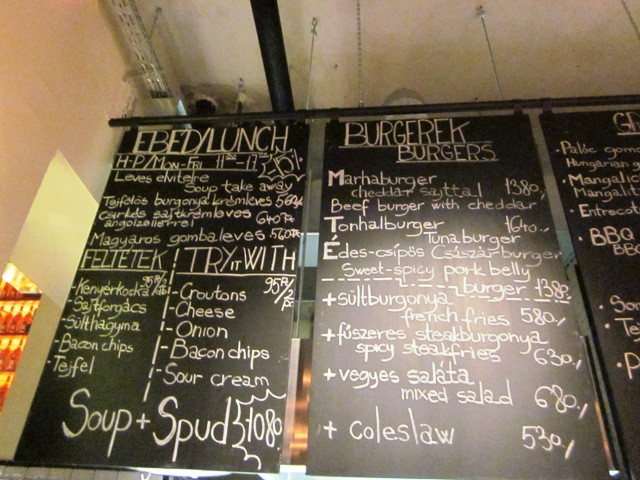 EBÉD/LUNCH
H-P/MON-FRI 11⁰⁰-17⁰⁰
Leves elvitelre
Soup take away
Tejfölös burgonyakrémleves 560Ft
Csirkés sajtkrémleves 640Ft
angolzellerrel
Magyaros gombaleves 560Ft
FELTÉTEK
95Ft/
-Kenyérkocka
-Sajtforgács
-Sülthagyma
-Bacon chips
-Tejfel
TRY IT WITH
95Ft/
-Croutons
-Cheese
-Onion
-Bacon chips
-Sour cream
Soup + Spud 1080
BURGEREK
BURGERS
Marhaburger
cheddar sajttal 1380,-
Beef burger with cheddar
Tonhalburger 1640,-
Tuna burger
Édes-csípős Császárburger
Sweet-spicy pork belly
burger 1380,-
+sültburgonya
french fries 580,-
+fűszeres steakburgonya
spicy steakfries 630,-
+vegyes saláta
mixed salad 680,-
+ coleslaw 530,-
•Palóc
Hungarian
•Mangalic
Mangalit
•Entrecô
•BBQ
BBQ